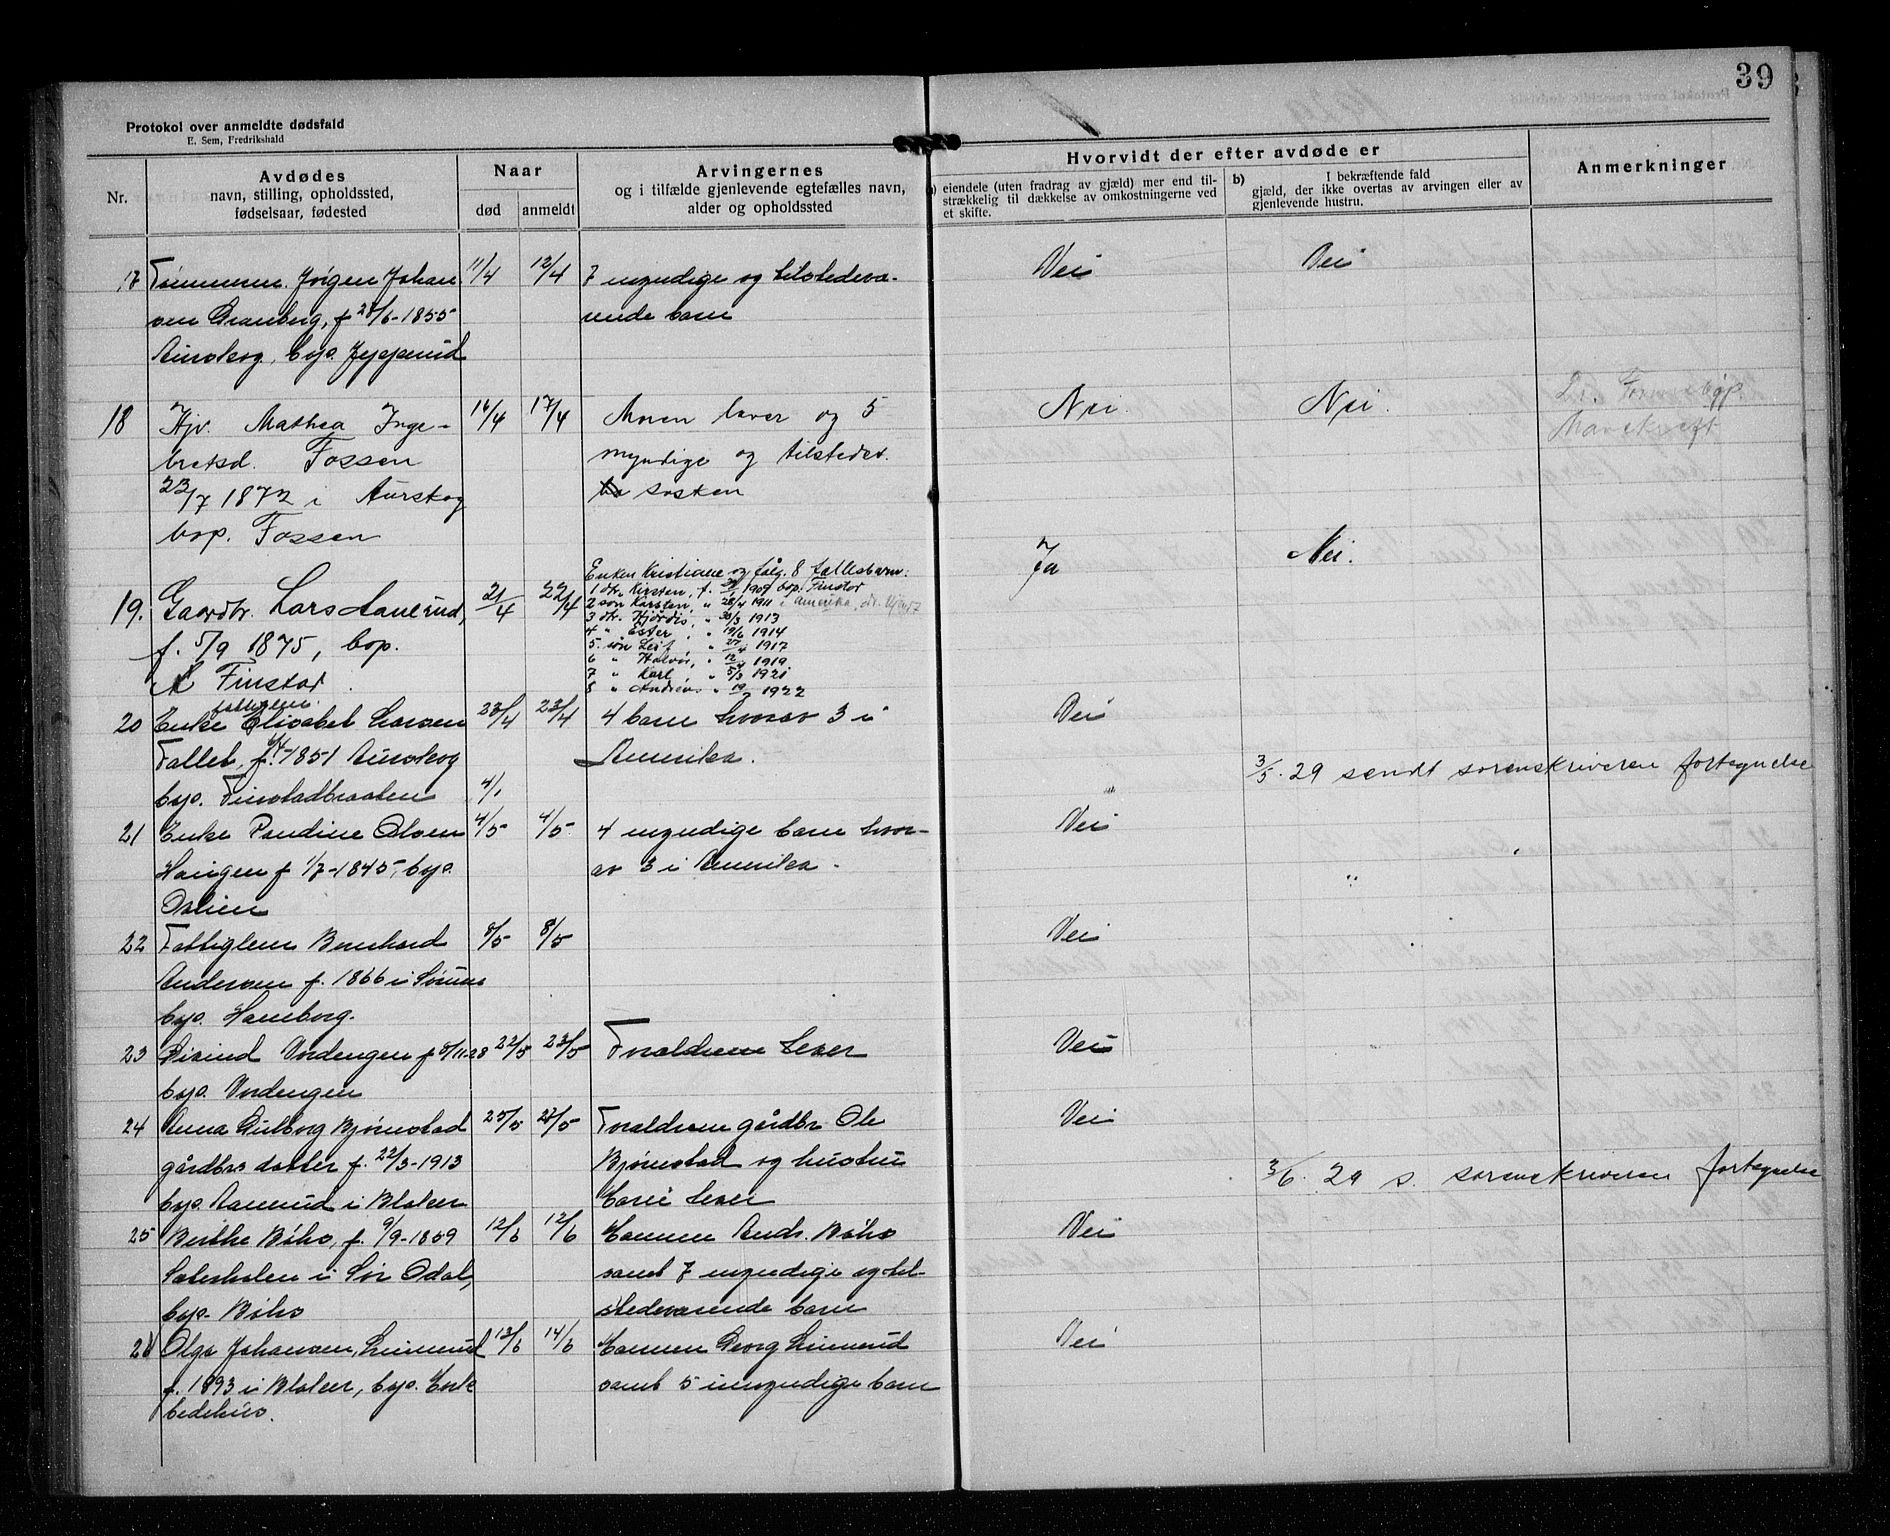 39
Protokol over anmeldte dødsfald
E. Sem, Fredrikshald
Nr.
Avdødes
navn, stilling, opholdssted,
fødselsaar, fødested
Naar
død
anmeldt
Arvingernes
og i tilfælde gjenlevende egtefælles navn,
alder og opholdssted
Hvorvidt der efter avdøde er
eiendele (uten fradrag av gjæld) mer end til-
strækkelig til dækkelse av omkostningerne ved
et skifte.
b) I bekræftende fald
gjæld, der ikke overtas av arvingen eller av
gjenlevende hustru.
Anmerkninger
17 Tømmerm. Jørgen Johan 11/4 12/4 7 myndige og tilstedevæ- Nei Nei
sen Granberg, f 28/6-1855 rende barn
Aurskog, bop. Jepperud
18 Hjv. Mathea Inge- 16/4 17/4 Moren lever og 5 Nei. Nei.
bretsd. Fossen myndige og tilstedev.
22/7 1872 i Aurskog søsken
bop. Fossen
Enken Kristiane og følg. 8 fællesbarn: Ja Nei.
1 dtr. Kirsten, f. 1909 bop. Finstad
19. Gaardbr. Lars Aanerud, 21/4 22/4 2 søn Karsten, " 28/4 1911 i Amerika
3 dtr. Hjørdis, " 30/3 1913
f. 5/9 1875, bop. 4 " Ester, " 19/6 1914
5. søn Leif, " 27/4 1917
6 " Halvor, " 12/4 1919
Finstad 7 " Karl, " 5/3 1921
8 " Andreas " 1922
fattiglem
20 Enke Elisabet Larsen 23/4 23/4 4 barn hvorav 3 i Nei
Fallet, f. 6/4-1851 Aurskog Amerika.
3/5. 29 sendt sorenskriveren fortegnelse
bop. Finstadbraaten 4/1
21 Enke Pauline Olsen 4/5 4/5 4 myndige barn hvor- Nei
Haugen f 1/7-1845, bop. av 3 i Amerika.
Oslien
22 Fattiglem Bernhard 8/5 8/5 Nei
Andersen f. 1866 i Sørum
bop. Haneborg.
23 Eivind Nordengen f 5/11-28 22/5 23/5 Forældrene lever Nei
bop. Nordengen
24 Anna Gulborg Bjørnstad 25/5 28/5 Forældrene gårdbr. Ole Nei
gårdbrs datter f. 22/3-1913 Bjørnstad og hustru
3/6. 29 s. sorenskriveren fortegnelse
bop. Aanerud i Blaker lever
25 Berthe Bøhs, f. 9/9-1859 12/6 12/6 Mannen Andr. Bøhs Nei
i Sør Odal, samt 7 myndige og til-
bop. Bøhs stedeværende barn
26 Olga Johansen, Linnerud 13/6 14/6 Mannen Georg Linnerud Nei
f. 1893 i Blaker, bop. samt 5 umyndige barn
bedehus.